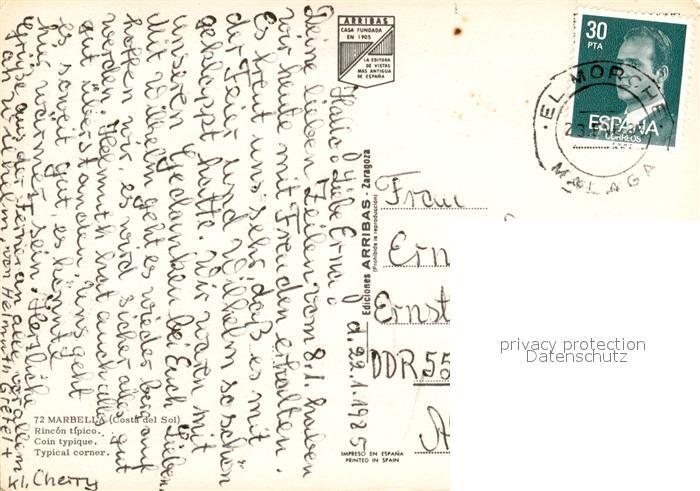 ARRIBAS
CASA FUNDADA
EN 1905
LA EDITORA
DE VISTAS
MAS ANTIGUA
DE ESPAÑA
30
PTA
ESPAÑA
CORREOS
EL MORCHE
MALAGA
Hallo Liebe Erna!
d. 22.1.1985
Deine lieben Zeilen vom 8.1. haben
wir heute mit Freuden erhalten.
Es freut uns sehr, daß es mit
der Feier und Wilhelm so schön
geklappt hatte. Wir waren mit
unseren Gedanken bei Euch Lieben.
Mit Wilhelm geht es wieder bergauf
hoffen wir, es wird sicher alles gut
werden. Helmuth hat auch alles gut
gut überstanden, uns geht
es soweit gut, es könnte
hier wärmer sein. Herzliche
Grüße aus der Ferne an alle vor allem
an Wilhelm, von Helmuth Gretel +
kl. Cherry
Ediciones ARRIBAS - Zaragoza
(Prohibida la reproducción)
Frau
Ern
Ernst
DDR 55
72 MARBELLA (Costa del Sol)
Rincón típico.
Coin typique.
Typical corner.
IMPRESO EN ESPAÑA
PRINTED IN SPAIN
privacy protection
Datenschutz